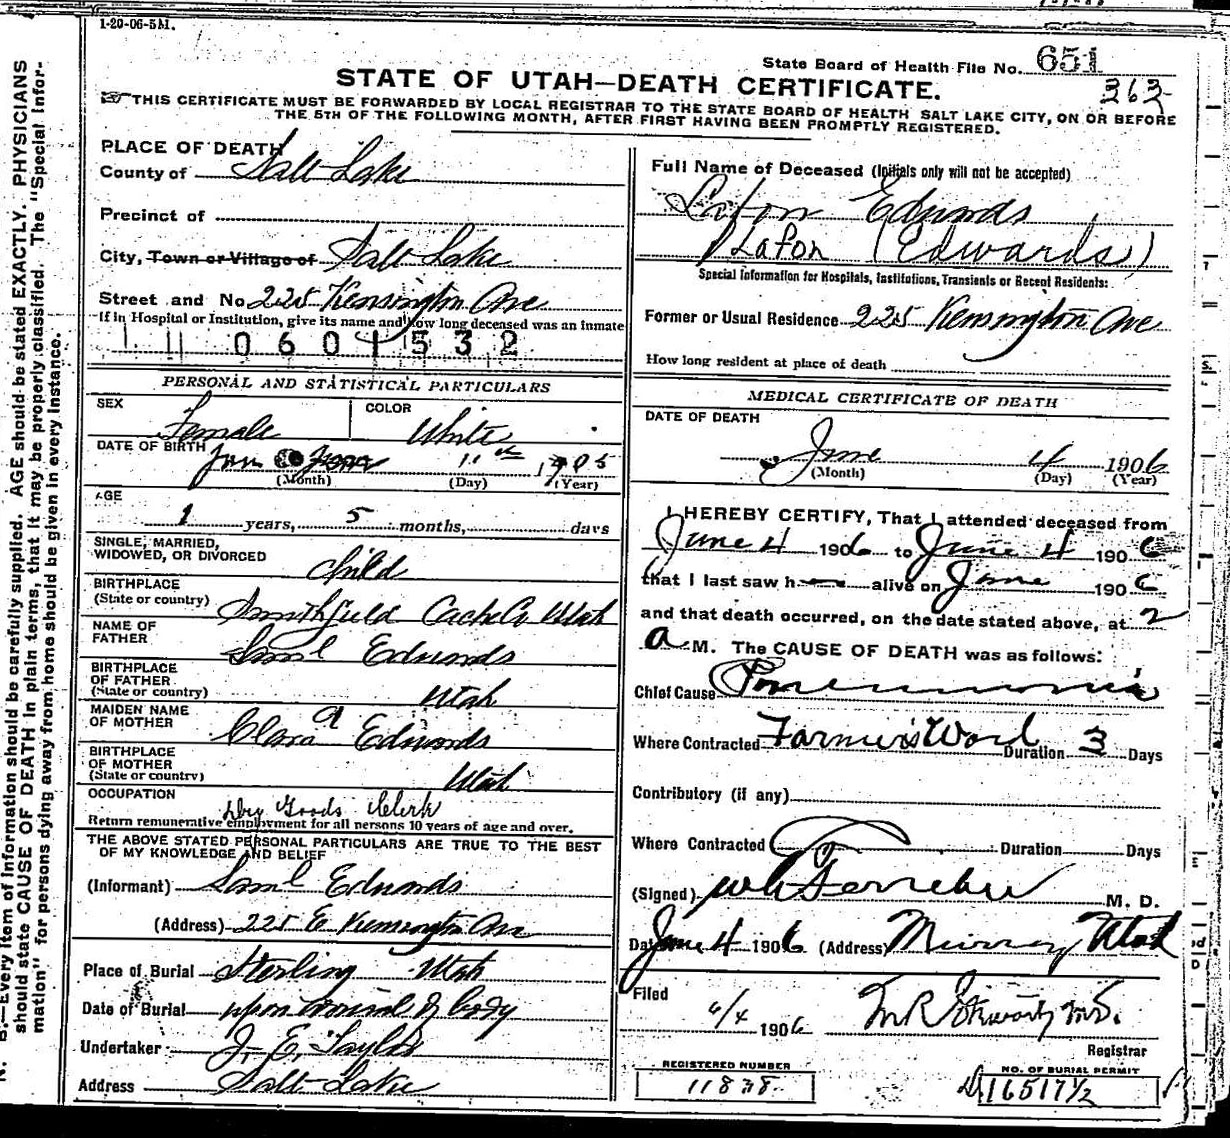 1-20-06-5M.
State Board of Health File No. 651
363
STATE OF UTAH—DEATH CERTIFICATE.
THIS CERTIFICATE MUST BE FORWARDED BY LOCAL REGISTRAR TO THE STATE BOARD OF HEALTH SALT LAKE CITY, ON OR BEFORE
THE 5TH OF THE FOLLOWING MONTH, AFTER FIRST HAVING BEEN PROMPTLY REGISTERED.
N. B.—Every item of information should be carefully supplied. AGE should be stated EXACTLY. PHYSICIANS
should state CAUSE OF DEATH in plain terms, that it may be properly classified. The "Special Infor-
mation" for persons dying away from home should be given in every instance.
PLACE OF DEATH
County of Salt Lake
Precinct of
City, Town or Village of Salt Lake
Street and No. 225 Kensington Ave
If in Hospital or Institution, give its name and how long deceased was an inmate
0 6 0 1 5 3 2
PERSONAL AND STATISTICAL PARTICULARS
SEX Female COLOR White
DATE OF BIRTH Jan 11th 1905
(Month) (Day) (Year)
AGE
1 years, 5 months, days
SINGLE, MARRIED,
WIDOWED, OR DIVORCED child
BIRTHPLACE
(State or country) Smithfield Cache Co Utah
NAME OF
FATHER Saml Edwards
BIRTHPLACE
OF FATHER
(State or country) Utah
MAIDEN NAME
OF MOTHER Clara a Edwards
BIRTHPLACE
OF MOTHER
(State or country) Utah
OCCUPATION Dry Goods Clerk
Return remunerative employment for all persons 10 years of age and over.
THE ABOVE STATED PERSONAL PARTICULARS ARE TRUE TO THE BEST
OF MY KNOWLEDGE AND BELIEF
(Informant) Saml Edwards
(Address) 225 E Kensington Ave
Place of Burial Sterling Utah
Date of Burial upon arrival of body
Undertaker J. E. Taylor
Address Salt Lake
Full Name of Deceased (Initials only will not be accepted)
Lafon Edwards
Lafon (Edwards)
Special Information for Hospitals, Institutions, Transients or Recent Residents:
Former or Usual Residence 225 Kensington Ave
How long resident at place of death
MEDICAL CERTIFICATE OF DEATH
DATE OF DEATH
June 4 1906
(Month) (Day) (Year)
I HEREBY CERTIFY, That I attended deceased from
June 4 1906 to June 4 1906
that I last saw h alive on June 1906
and that death occurred, on the date stated above, at 2
a M. The CAUSE OF DEATH was as follows:
Chief Cause Pneumonia
Where Contracted Farmers Word Duration 3 Days
Contributory (if any)
Where Contracted Duration Days
(Signed) M. D.
Date June 4 1906 (Address) Murray Utah
Filed
6/4 1906
Registrar
REGISTERED NUMBER
11838
NO. OF BURIAL PERMIT
16517½